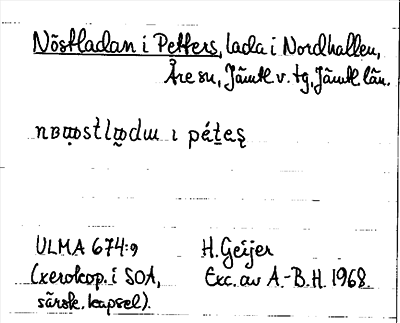 Nöstladan i Petters, lada i Nordhallen,
Åre sn, Jämtl. v. tg, Jämtl län.
ı pétes
ULMA 674:9 H. Geijer
(xerokop. i SOA, Exc. av A.-B.H. 1968
särsk. kapsel).